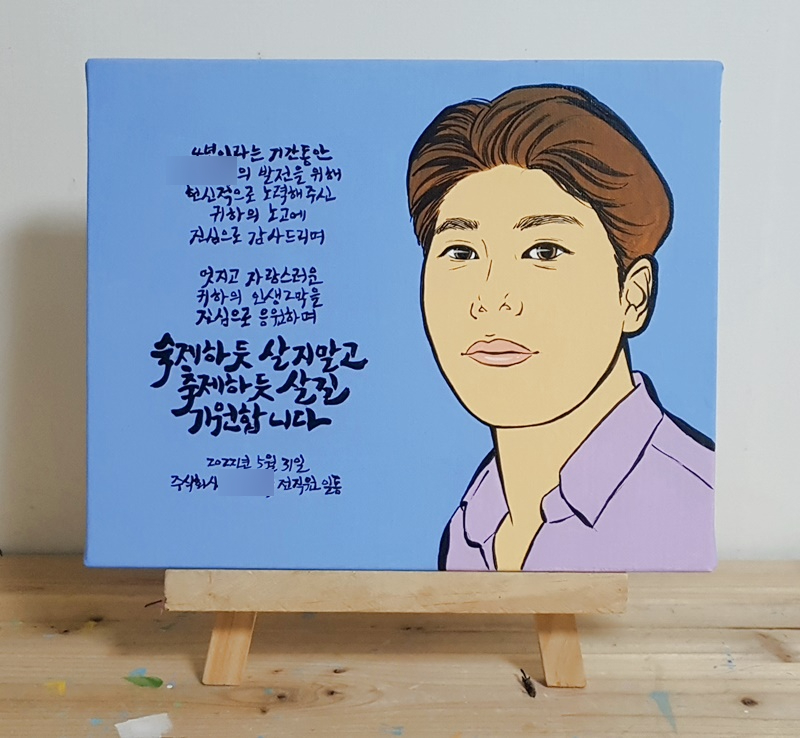 4년이라는 기간동안
의 발전을 위해
헌신적으로 노력해주신
귀하의 노고에
진심으로 감사드리며
멋지고 자랑스러운
귀하의 인생2막을
진심으로 응원하며
숙제하듯 살지말고
축제하듯 살길
기원합니다
2022년 5월 31일
주식회사 전직원 일동